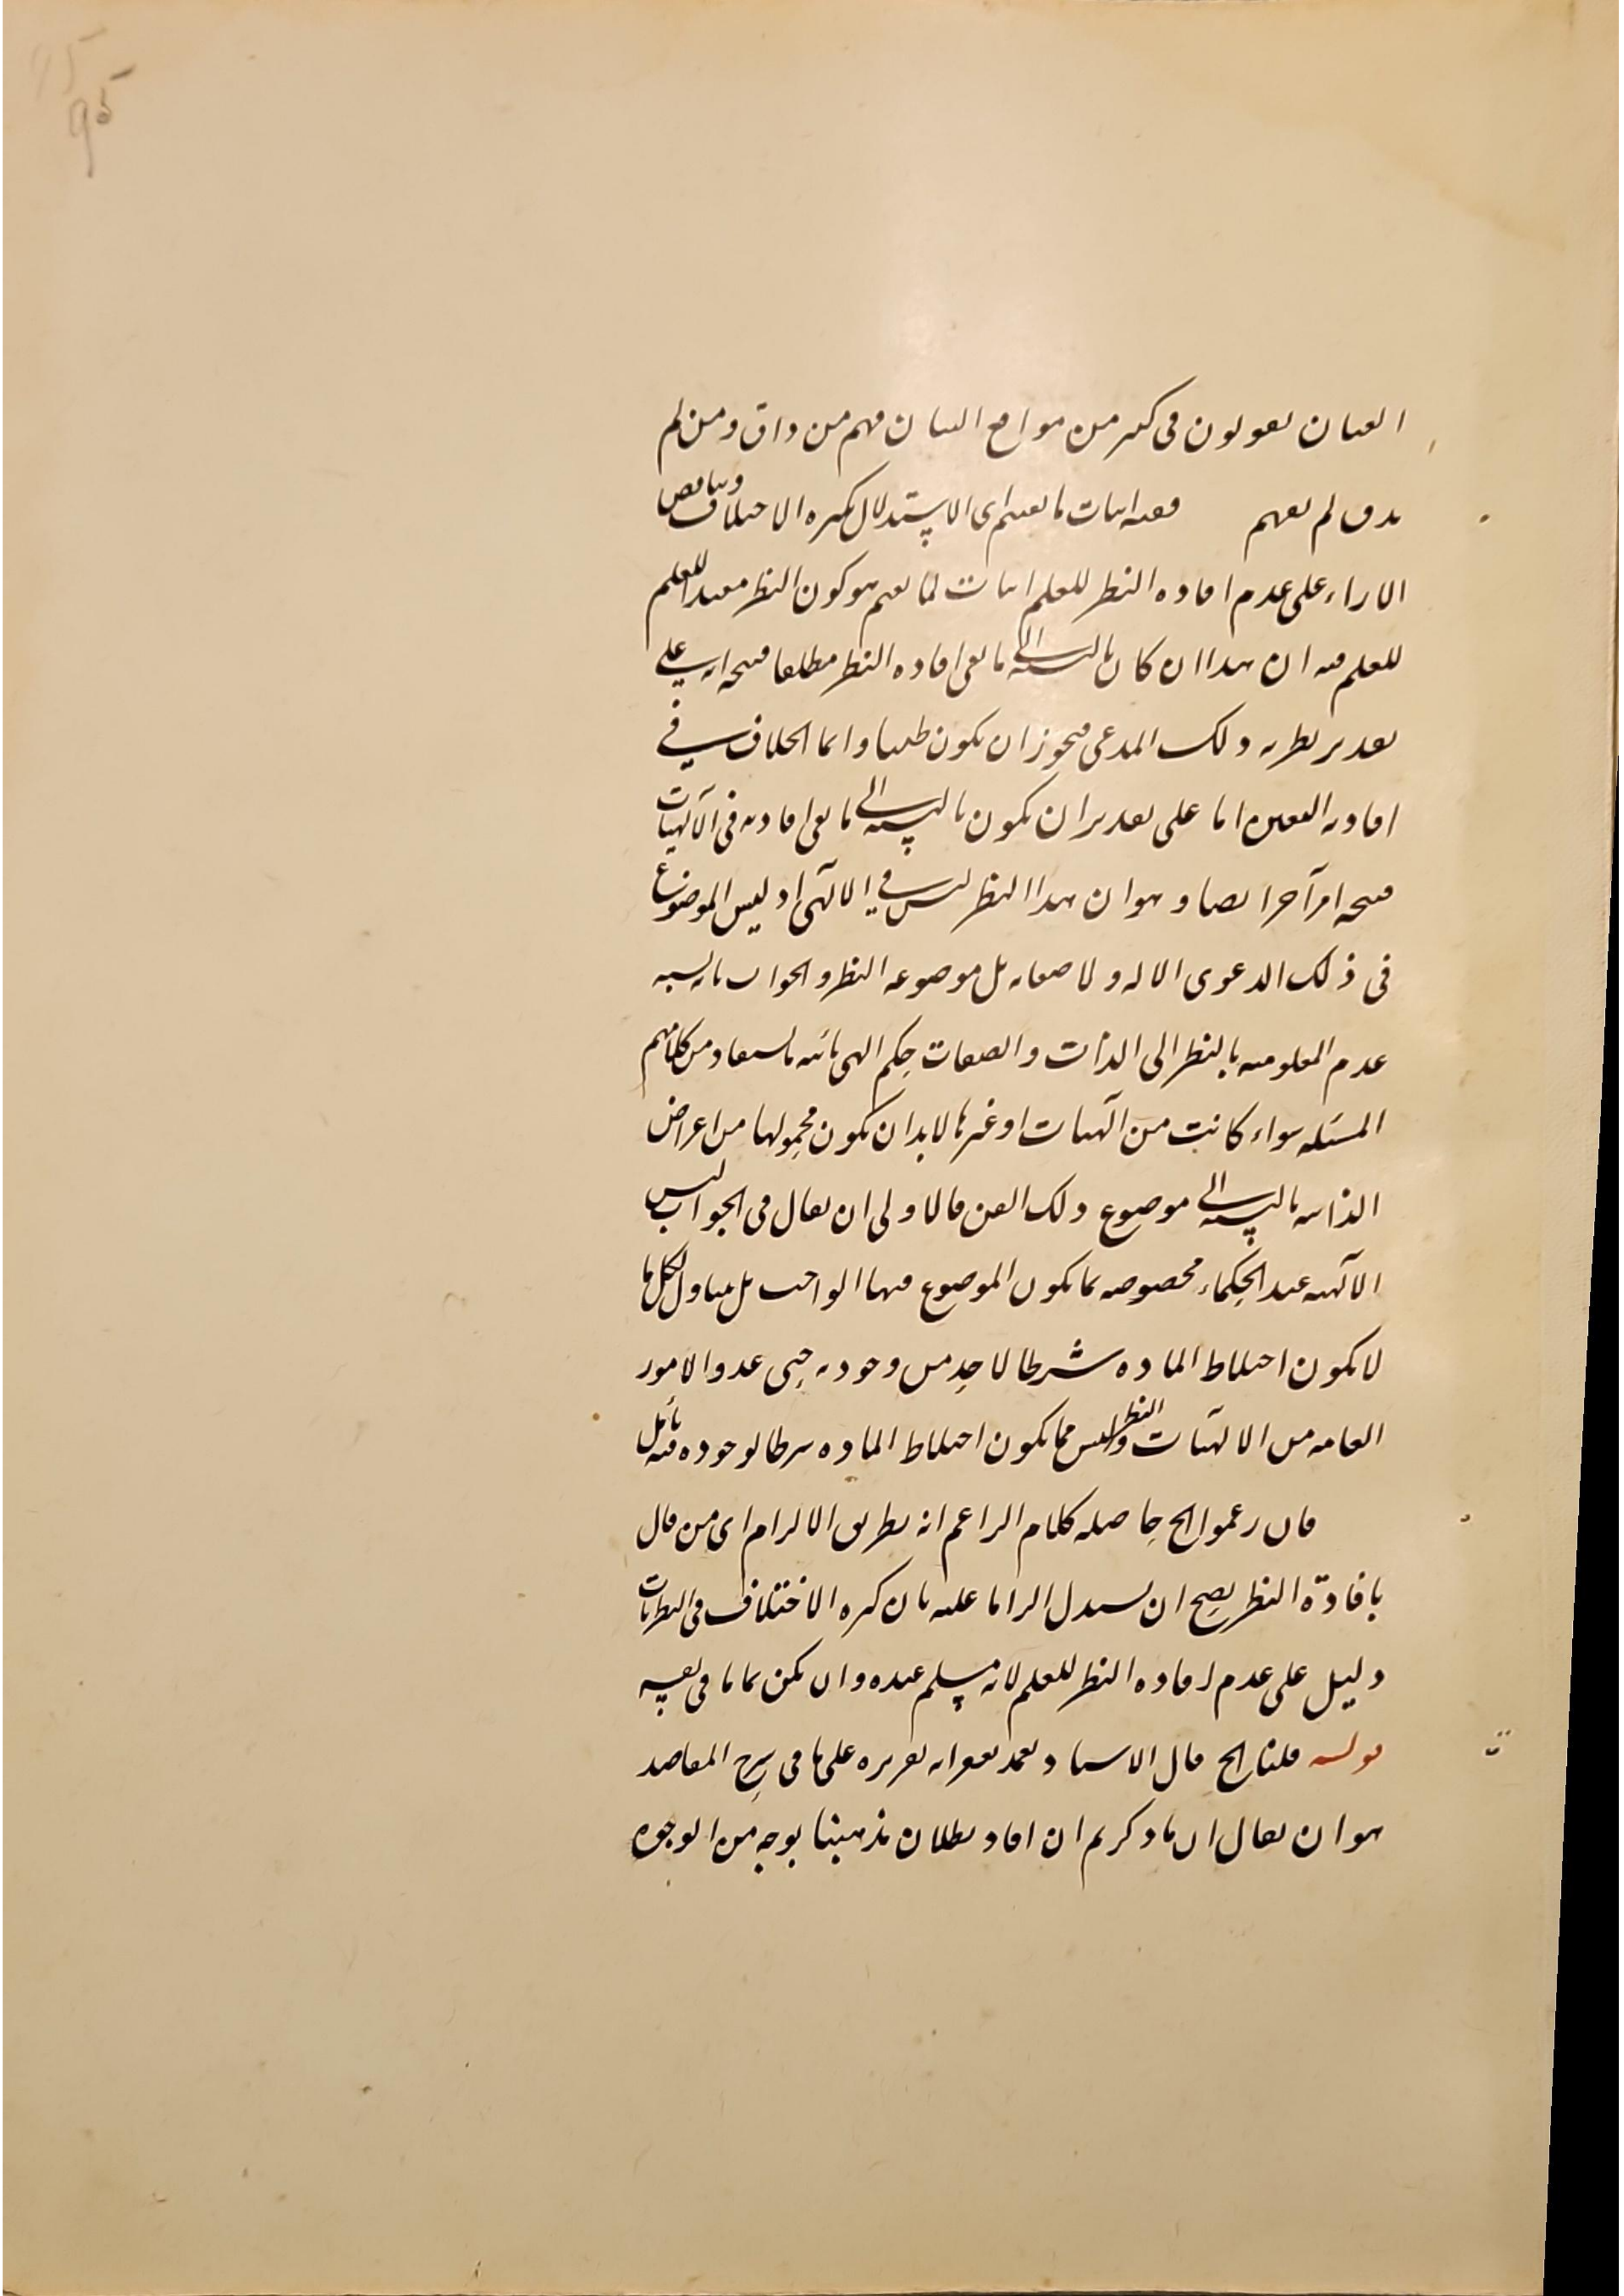 95
95
العيان يقولون في كثير من مواضع البيان فهم من ذاق ومن لم
يذق لم يفهم ففيه اثبات ما نفيتم اي الاستدلال بكثرة الاختلاف وتناقض
الاراء على عدم افاده النظر للعلم اثبات لما نفيتم هو كون النظر مفيدا للعلم
للعلم فيه ان هذا ان كان بالنسبة الى ما نفى افاده النظر مطلقا فيتجه انه على
تقدير نظريه ذلك المدعى فيجوز ان يكون ظنيا وانما الخلاف في
افادته اليقين اما على تقدير ان يكون بالنسبة الى ما نفى افادته في الآلهيات
فيتجه امر آخر ايضا وهو ان هذا النظر ليس في الالآهي اذ ليس الموضوع
في ذلك الدعوى الاله ولا صفاته بل موضوعه النظر والجواب بانه نسبه
عدم المعلوميه بالنظر الى الذات والصفات حكم الهي بانه ما يستفاد من كلامهم
المسئله سواء كانت من آلهيات او غيرها لا بد ان يكون محمولها من اعراض
الذاتيه بالنسبة الى موضوع ذلك الفن فالاولى ان يقال في الجواب ليس
الآلهيه عند الحكماء مخصوصه بما يكون الموضوع فيها الواجب بل يتناول لكل ما
لا يكون اختلاط الماده شرطا لاحد من وجوديه حتى عدوا الامور
العامه من الالآهيات والنظر ليس مما يكون اختلاط الماده شرطا لوجوده فيه تأمل
فان زعموا الخ حاصله كلام الزاعم انه بطريق الالزام اي من قال
بافادة النظر يصح ان يستدل الزاما عليه بان كثره الاختلاف في النظريات
دليل على عدم افاده النظر للعلم لانه مسلم عنده وان لم يكن تماما في نفسه
قوله قلنا الخ قال الاستاد تغمد بغفرانه تقريره على ما في شرح المقاصد
هو ان يقال ان ما ذكرتم ان افاد بطلان مذهبنا بوجه من الوجوه